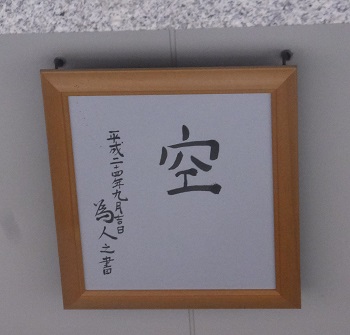 空
平成二十四年九月吉日
為人之書